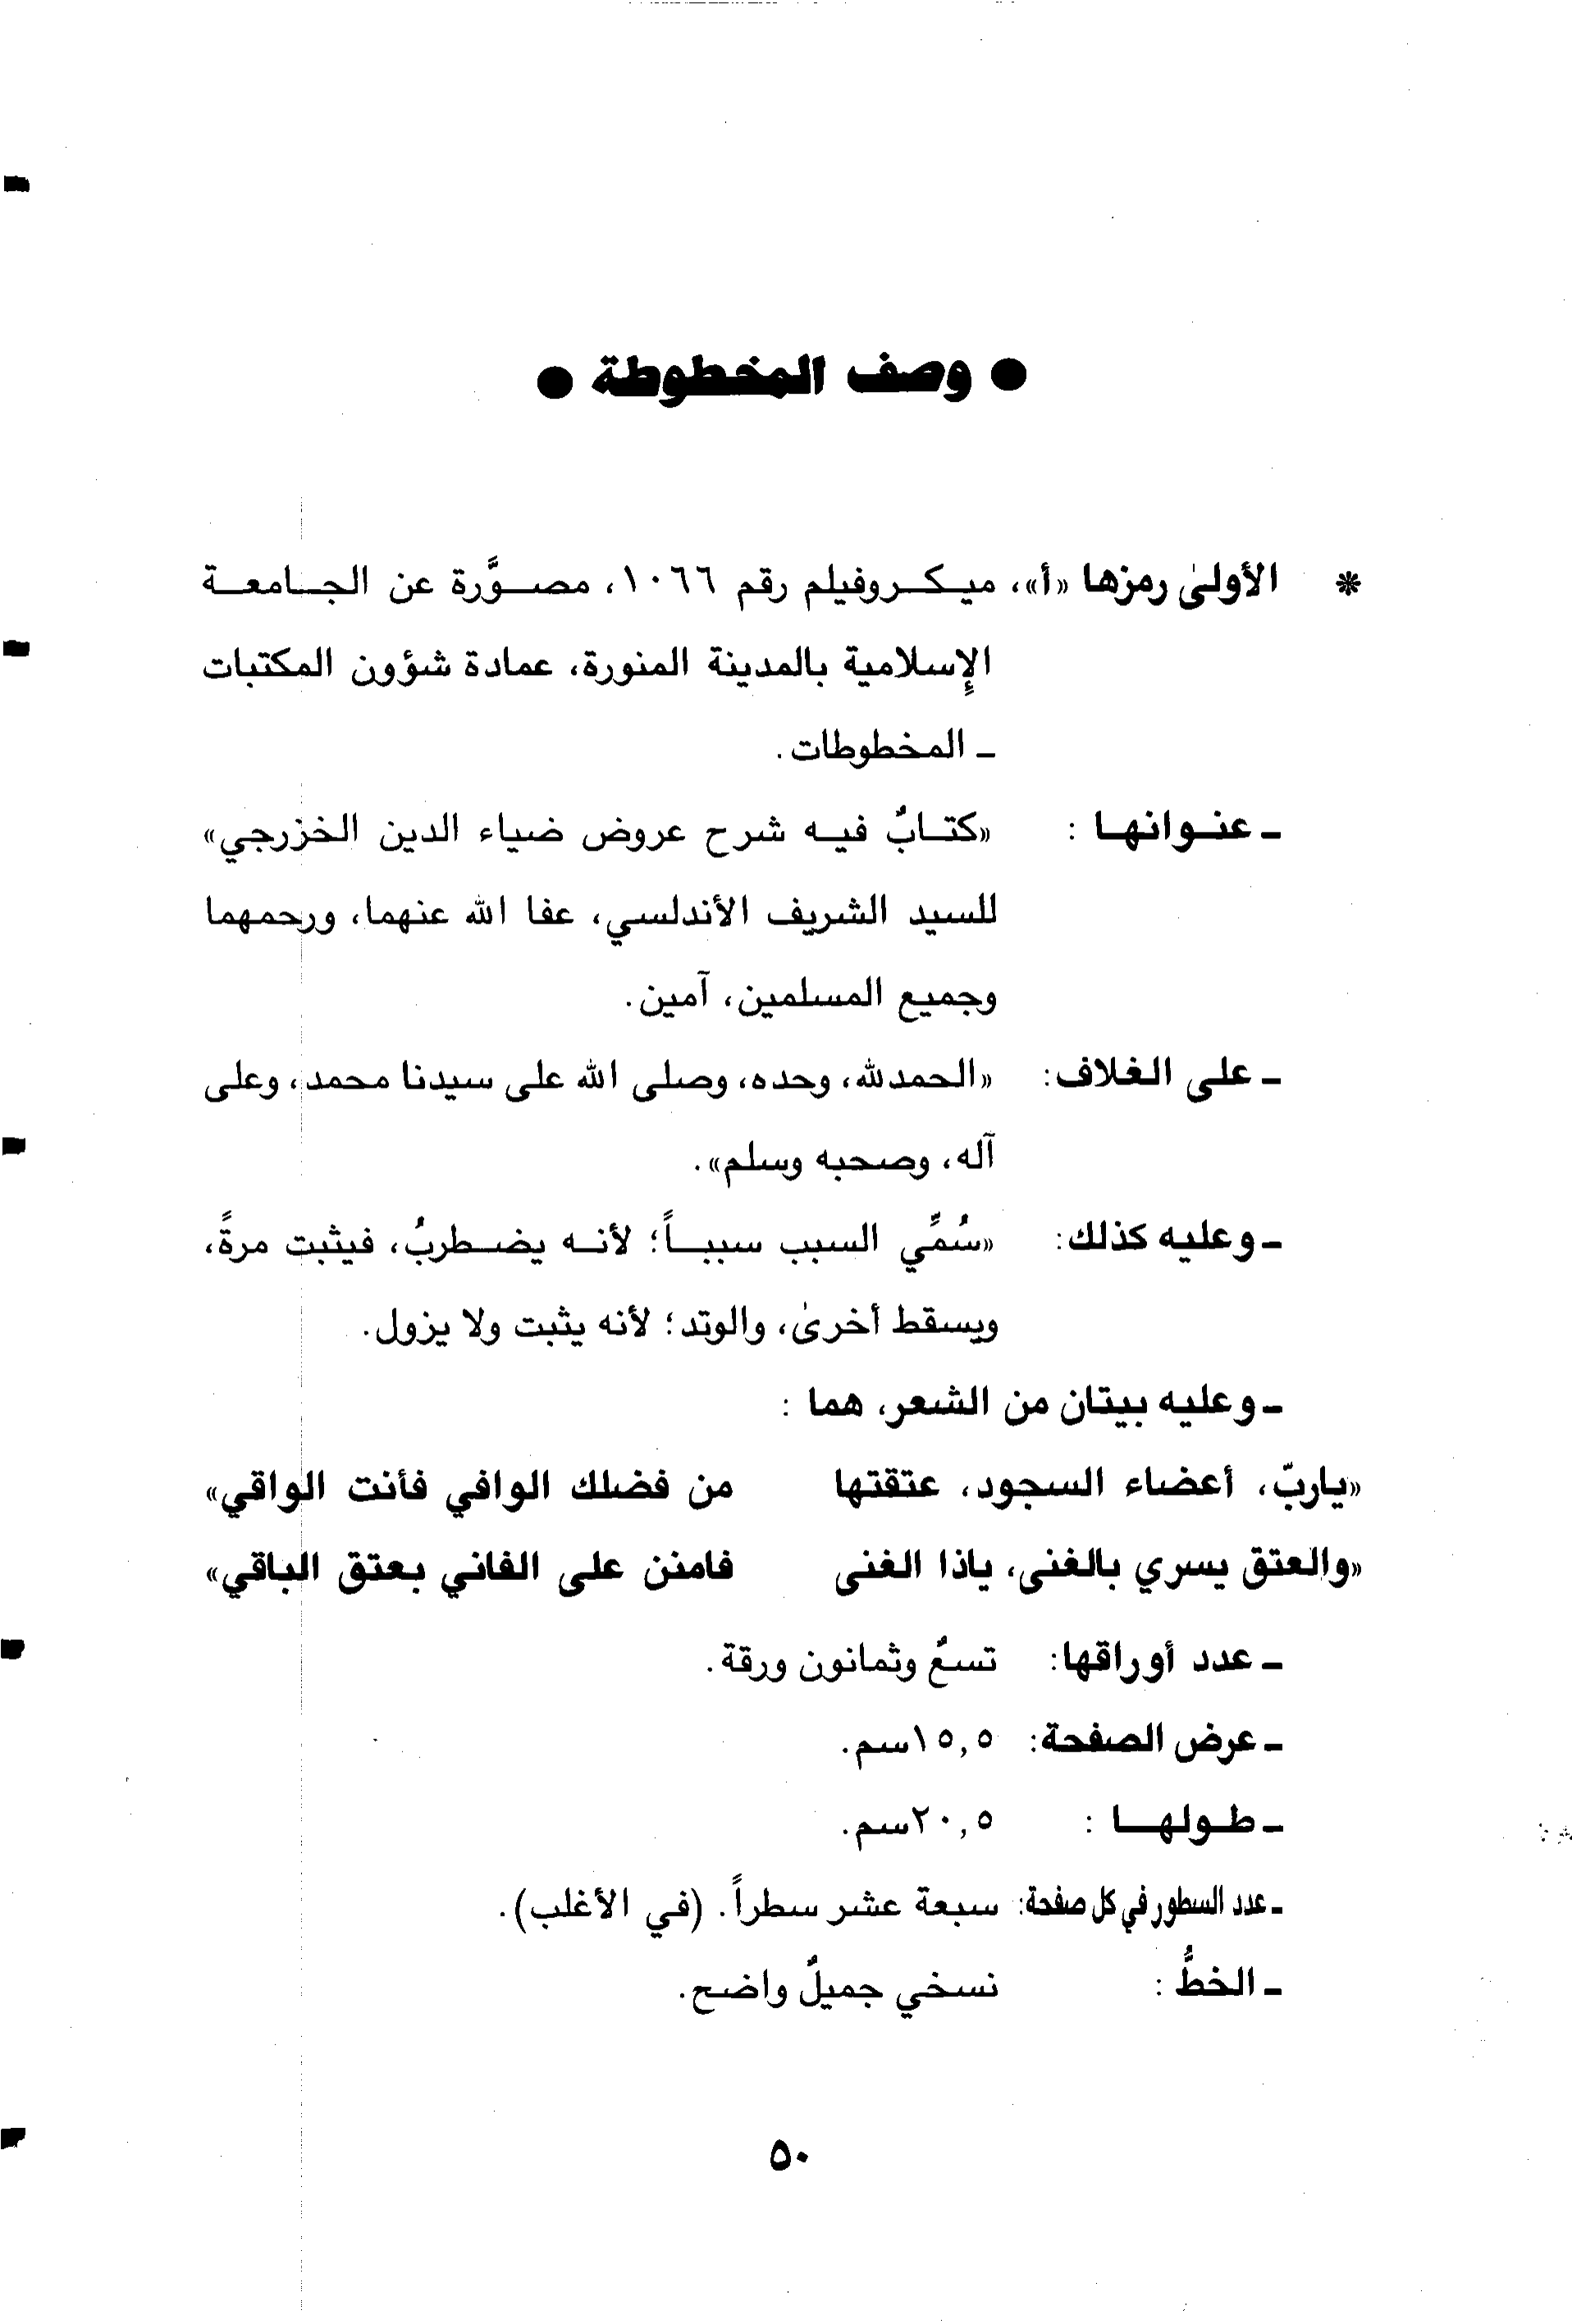 ● وصف المخطوطة ●
* الأولىٰ رمزها «أ»، ميكروفيلم رقم ١٠٦٦، مصوَّرة عن الجامعة
الإسلامية بالمدينة المنورة، عمادة شؤون المكتبات
ـ المخطوطات.
ـ عنوانها : «كتابٌ فيه شرح عروض ضياء الدين الخزرجي»
للسيد الشريف الأندلسي، عفا الله عنهما، ورحمهما
وجميع المسلمين، آمين.
ـ على الغلاف: «الحمدلله، وحده، وصلى الله على سيدنا محمد، وعلى
آله، وصحبه وسلم».
ـ وعليه كذلك: «سُمِّي السبب سبباً؛ لأنه يضطربُ، فيثبت مرةً،
ويسقط أخرىٰ، والوتد؛ لأنه يثبت ولا يزول.
ـ وعليه بيتان من الشعر، هما :
«ياربّ، أعضاء السجود، عتقتها من فضلك الوافي فأنت الواقي»
«والعتق يسري بالغنى، ياذا الغنى فامنن على الفاني بعتق الباقي»
ـ عدد أوراقها: تسعٌ وثمانون ورقة.
ـ عرض الصفحة: ١٥,٥سم.
ـ طولها : ٢٠,٥سم.
ـ عدد السطور في كل صفحة: سبعة عشر سطراً. (في الأغلب).
ـ الخطُّ : نسخي جميلٌ واضح.
٥٠